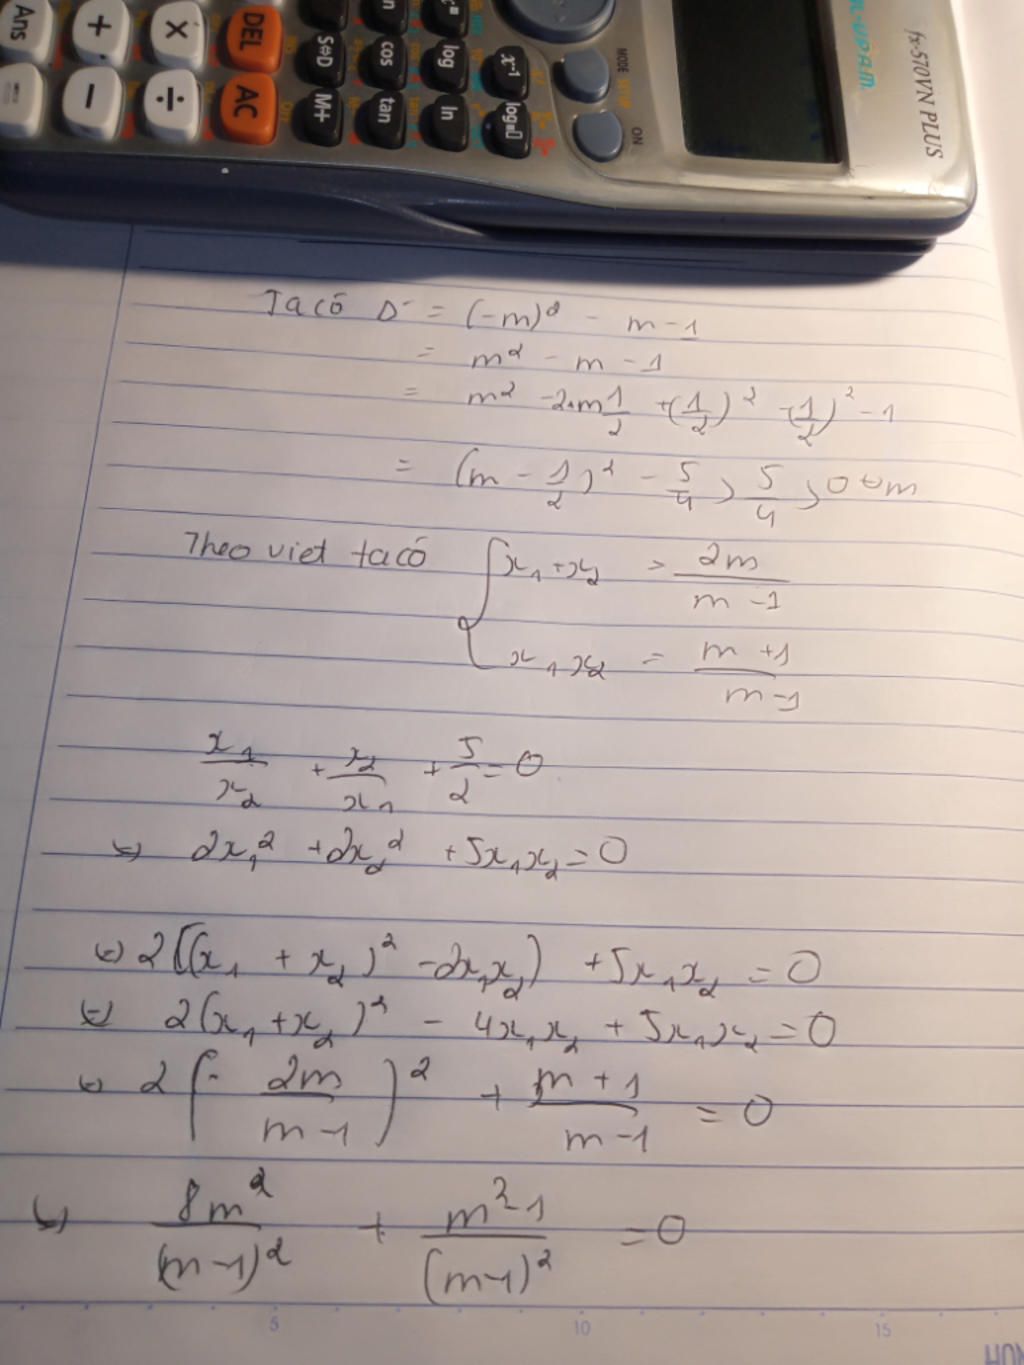 fx-570VN PLUS
MODE SETUP
ON
Ans + X DEL
S⇔D cos log x⁻¹
− ÷ AC M+ tan ln log
Ta có Δ' = (-m)² - m-1
= m² - m - 1
= m² - 2.m 1/2 + (1/2)² - (1/2)² - 1
= (m - 1/2)² - 5/4 > 5/4 > 0 ∀m
Theo viet ta có { x₁+x₂ = 2m/(m-1)
x₁x₂ = (m+1)/(m-1)
x₁/x₂ + x₂/x₁ + 5/2 = 0
⇔ 2x₁² + 2x₂² + 5x₁x₂ = 0
⇔ 2[(x₁ + x₂)² - 2x₁x₂) + 5x₁x₂ = 0
⇔ 2(x₁+x₂)² - 4x₁x₂ + 5x₁x₂ = 0
⇔ 2(- 2m/(m-1))² + (m+1)/(m-1) = 0
⇔ 8m²/(m-1)² + (m²-1)/(m-1)² = 0
5 10 15